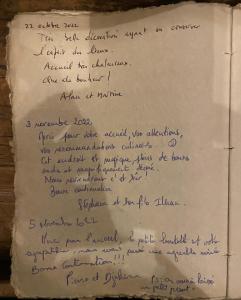 22 octobre 2022
Très belle décoration ayant su conserver
l'esprit du lieux.
Accueil très chaleureux.
Que du bonheur !
Alain et Martine
3 novembre 2022,
Merci pour votre accueil, vos attentions,
vos recommandations culinaires
Cet endroit est magique, plein de bonnes
et magnifiquement décoré.
Nous reviendrons c'est sûr !
Bonne continuation
Stéphane et son fils
5 novembre
Merci pour l'accueil, la petite bouteille et votre
sympathie, nous avons passé une agréable soirée
Bonne continuation !!!
Pierre et
Ps: on vous a laissé
un petit